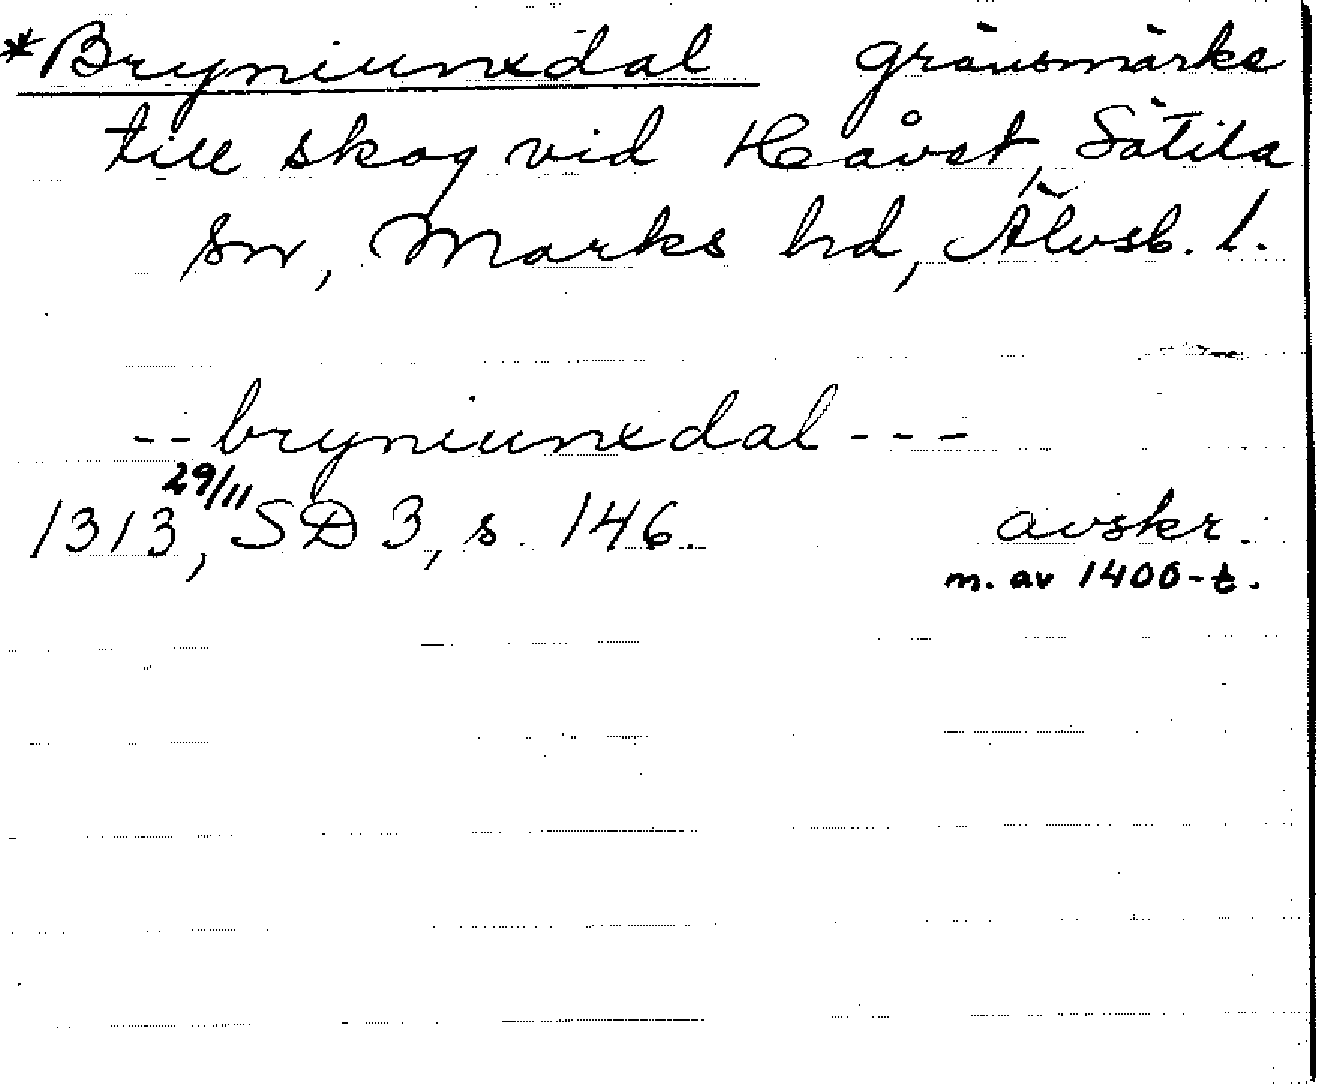 *Bryniunxdal gränsmärke
till skog vid Håvst, Sätila
sn, Marks hd, Älvsb. l.
--bryniunxdal---
1313 29/11, SD 3, s. 146. avskr.
m. av 1400-t.